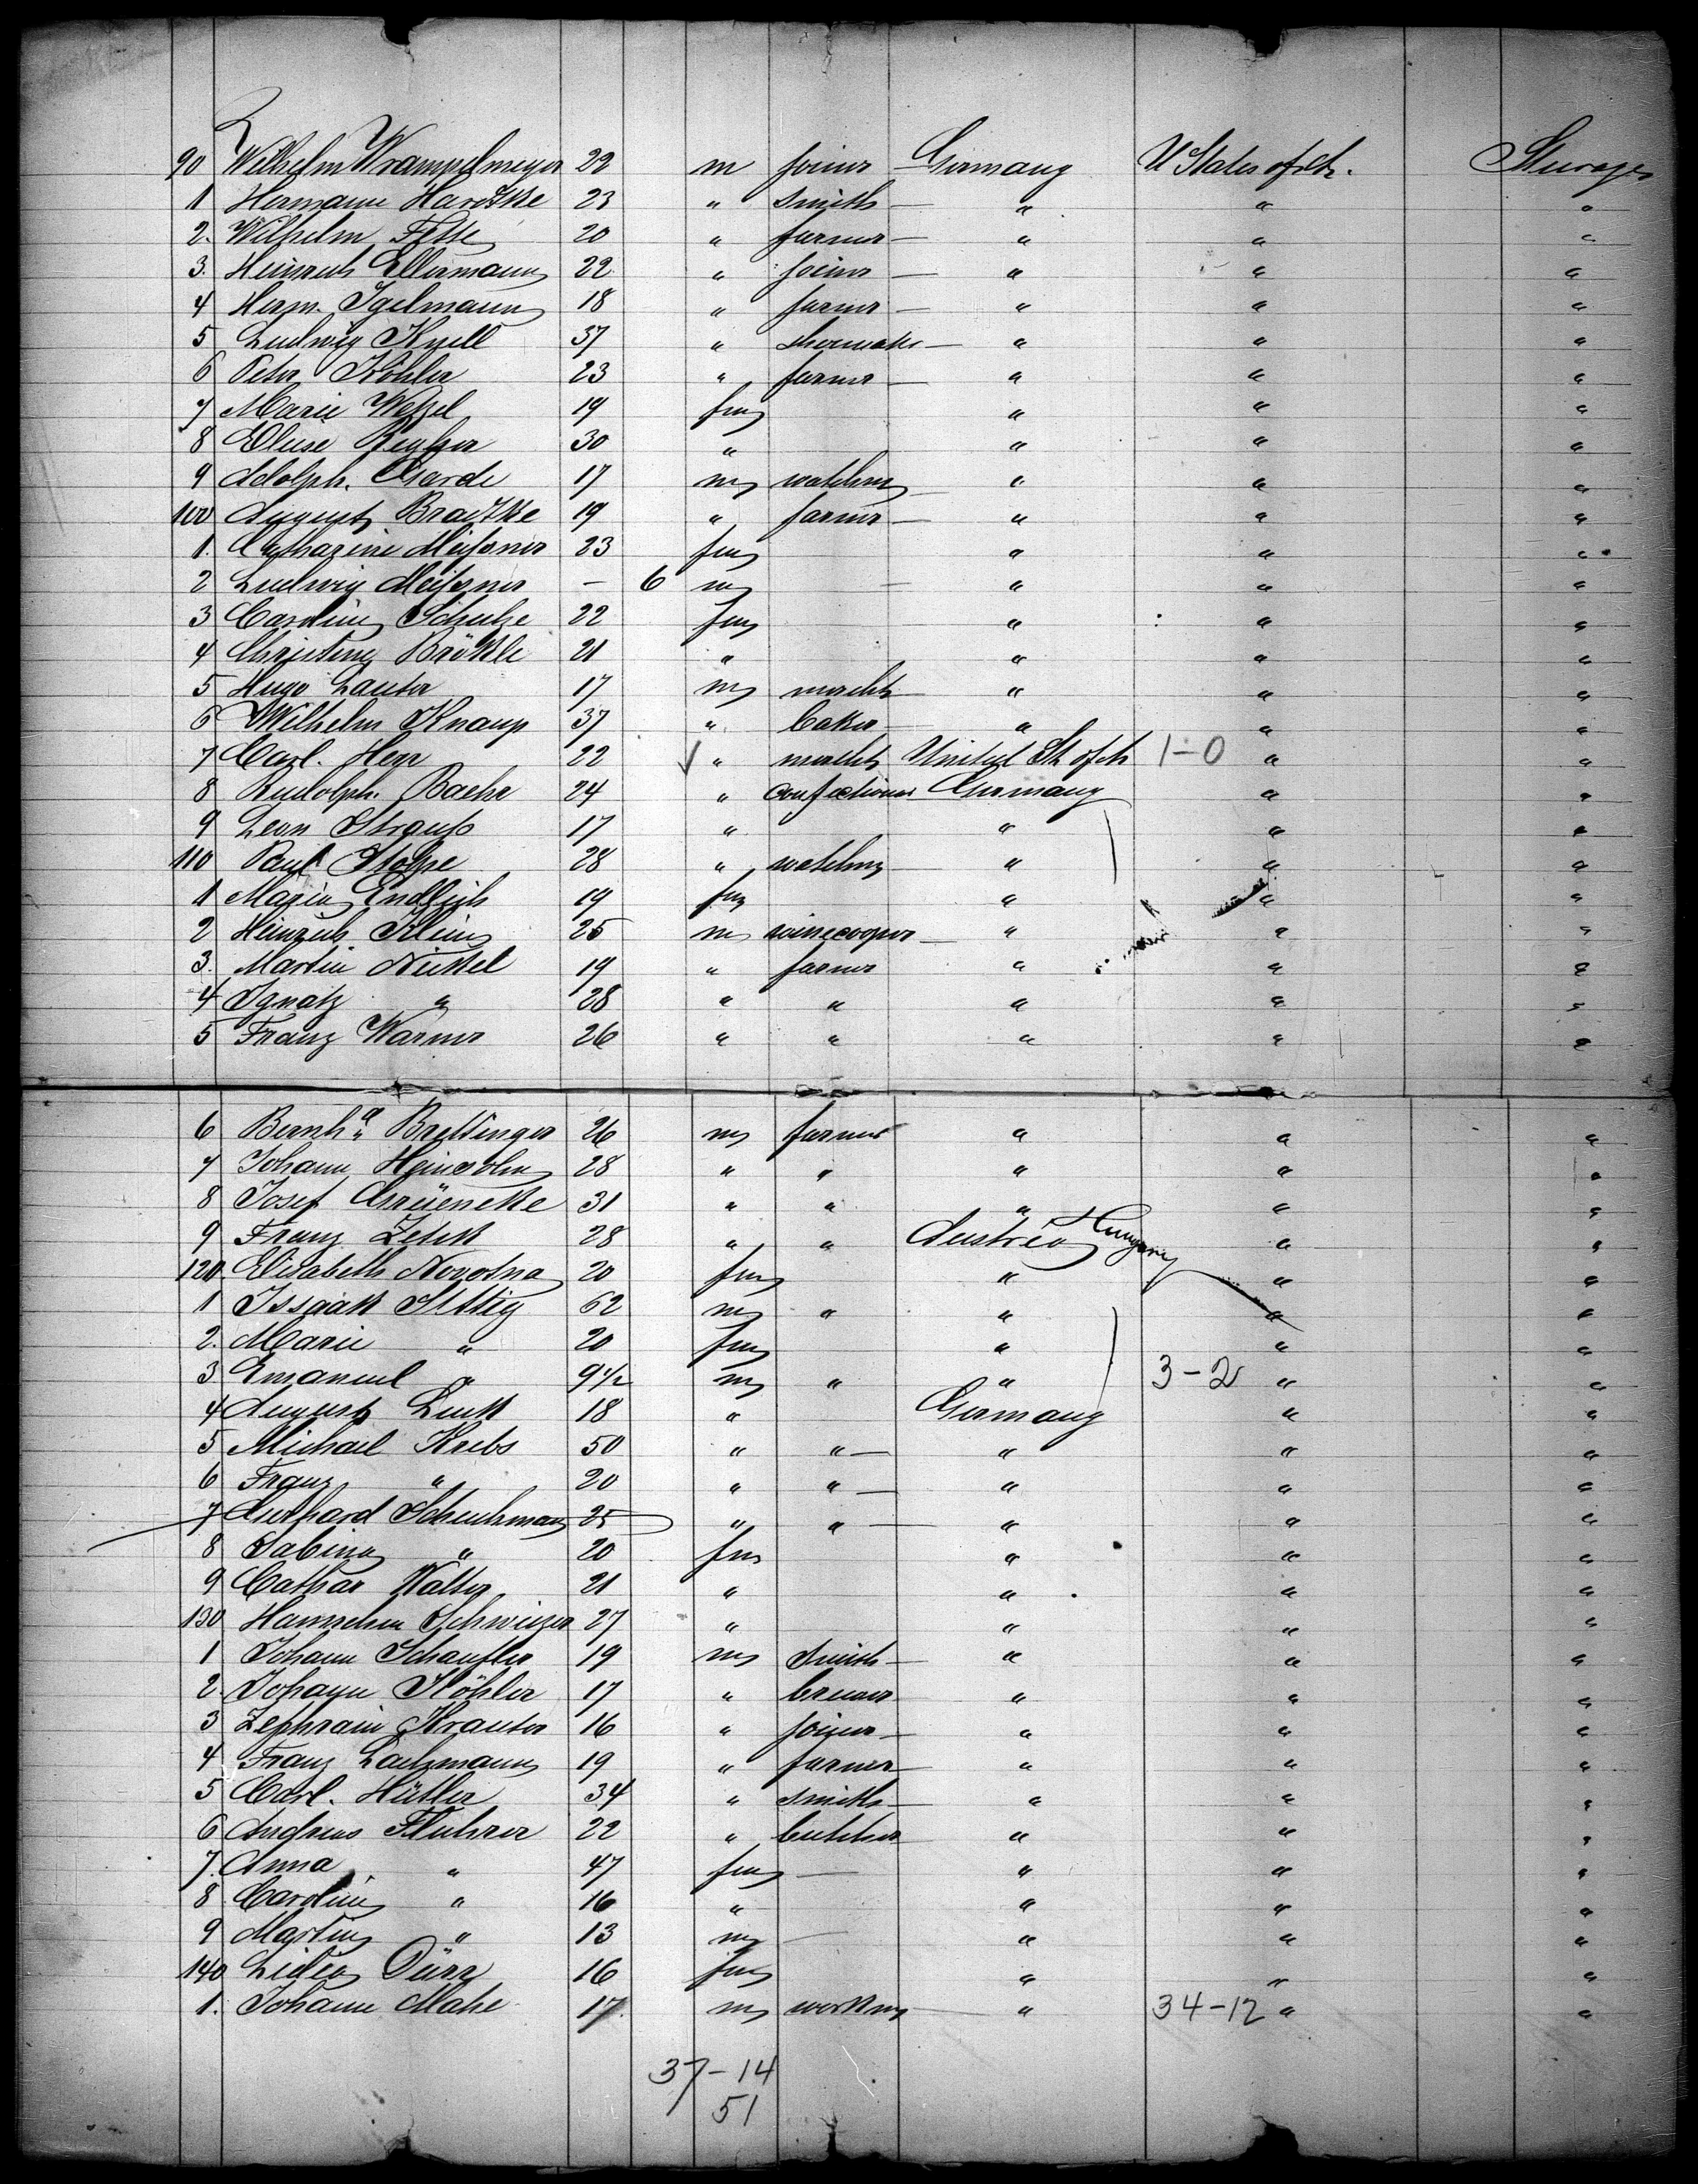 90 Wilhelm Wrampelmeyer 22 m joiner Germany U States of A. Steerage
1 Hermann Haretzke 23 " smith — " " "
2. Wilhelm Fette 20 " farmer — " " "
3. Heinrich Ellermann 22 " joiner — " " "
4 Herm. Igelmann 18 " farmer — " " "
5 Ludwig Knell 37 " shoemaker — " " "
6 Peter Köhler 23 " farmer — " " "
7 Marie Wetzel 19 fm " " "
8 Eluse 30 " " " "
9 Adolph. Garde 17 m watchm " " "
100 August Bratzke 19 " farmer — " " "
1. Catharine Meissner 23 fm " " "
2 Ludwig Meissner — 6 m — " " "
3 Caroline Schulze 22 fm " " "
4 Christine Brökle 21 " " " "
5 Hugo Lauter 17 m mercht " " "
6 Wilhelm Knaup 37 " baker — " " "
7 Carl. Herr 22 " mercht United St of A 1-0 " "
8 Rudolph. Baehr 24 " confectioner Germany " "
9 Leon Strauss 17 " " " "
110 Paul Stolpe 28 " watchm — " " "
1 Maria Endlich 19 fm " " "
2 Heinrich Klein 25 m winecooper — " " "
3. Martin Nickel 19 " farmer " " "
4 Ignatz " 28 " " " " "
5 Franz Warner 26 " " " " "
6 Bernhd Brettinger 26 m farmer " " "
7 Johann Heinsohn 28 " " " " "
8 Josef Grüeneke 31 " " " " "
9 Franz Zelek 28 " " Austria Hungary " "
120. Elisabeth Novotna 20 fm " " "
1 Issaak Sittig 62 m " " " "
2. Marie " 20 fm " " "
3 Emanuel " 9½ m " " 3-2 " "
4 August Link 18 " Germany " "
5 Michael Krebs 50 " " — " " "
6 Franz " 20 " " — " " "
7 Gerhard Schuhmann 25 " " — " " "
8 Sabina " 20 fm " " "
9 Cathar Walter 21 " " " "
130 Hannchen Schweizer 27 " " " "
1 Johann Schaufler 19 m smith — " " "
2. Johann Köhler 17 " brewer " " "
3 Zephrain Krauter 16 " joiner — " " "
4 Franz Lachmann 19 " farmer — " " "
5 Carl. Hütler 34 " smith — " " "
6 Andreas Fluhrer 22 " butcher " " "
7. Anna " 47 fm — " " "
8 Caroline " 16 " " " "
9 Martin " 13 m — " " "
140 Lidia Dürr 16 fm " " "
1. Johann Mahe 17. m workm — " 34-12 " "
37-14
51